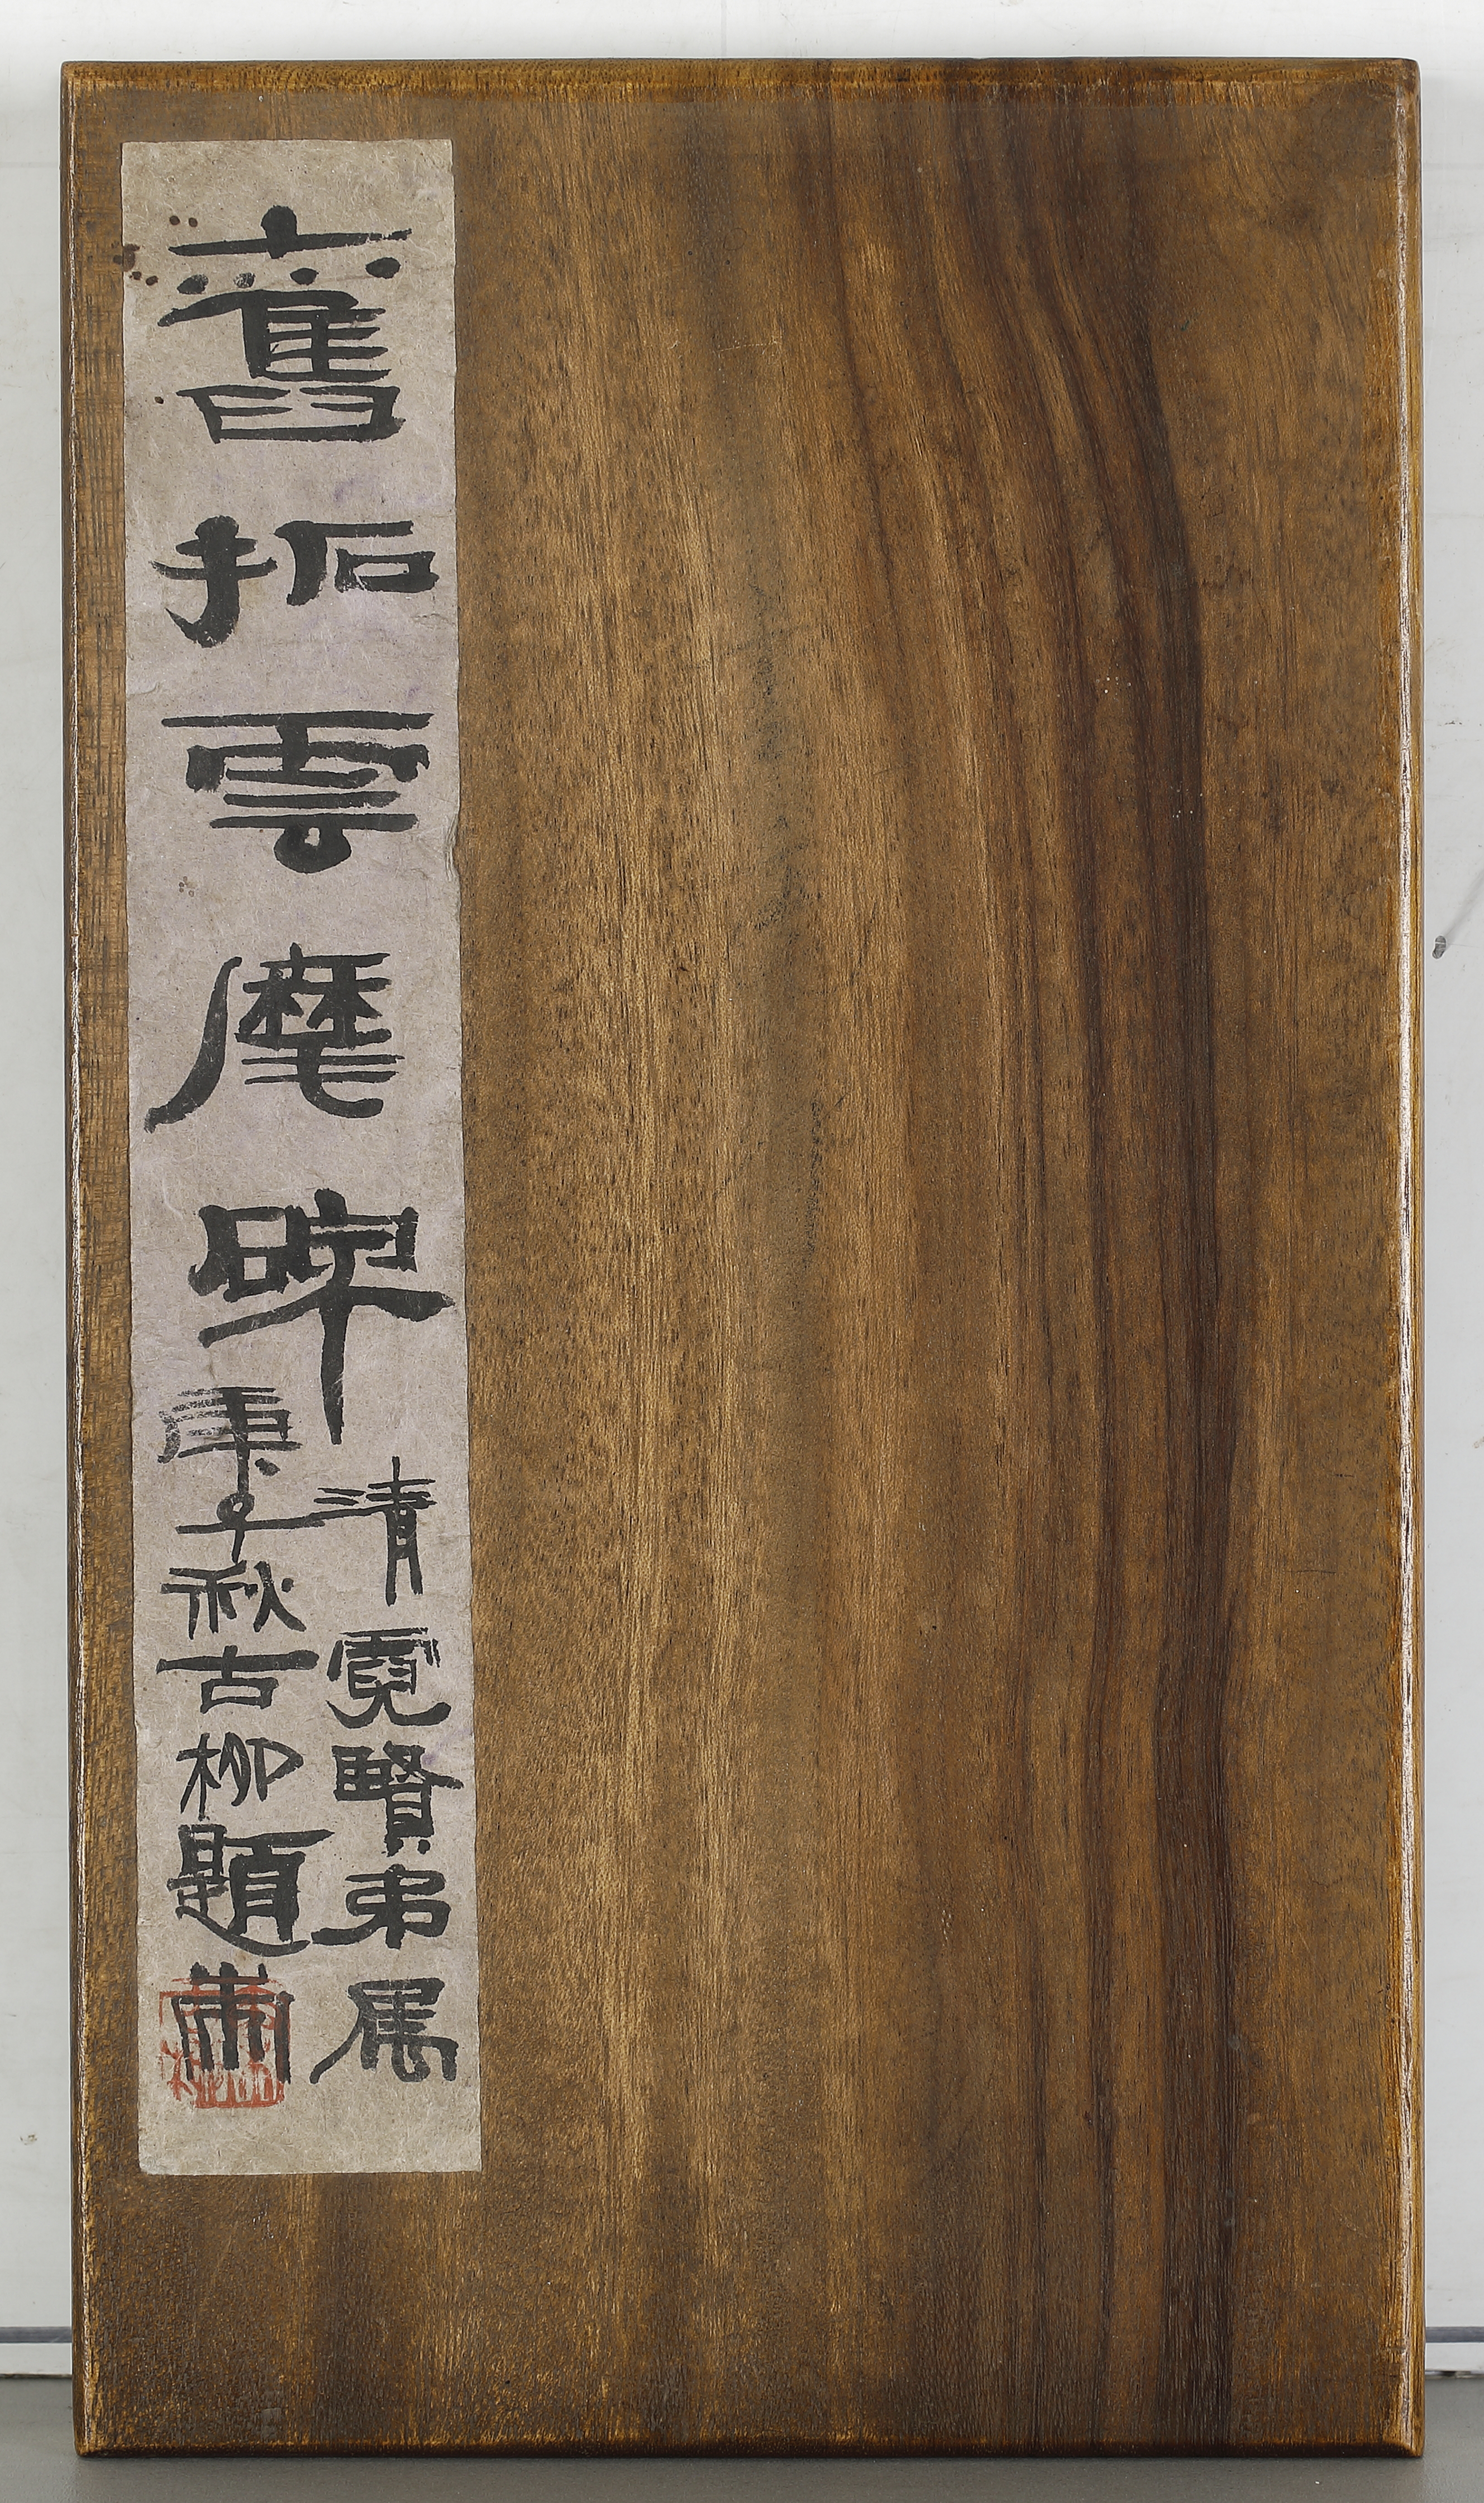 舊拓雲麾碑
清霓賢弟属
庚子秋古柳題耑